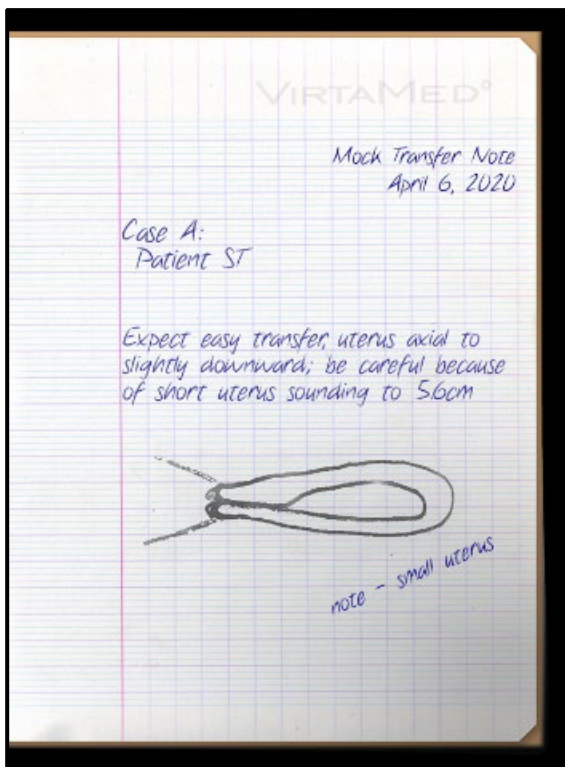 VIRTAMED°
Mock Transfer Note
April 6, 2020
Case A:
Patient ST
Expect easy transfer, uterus axial to
slightly downward; be careful because
of short uterus sounding to 5.6cm
note - small uterus